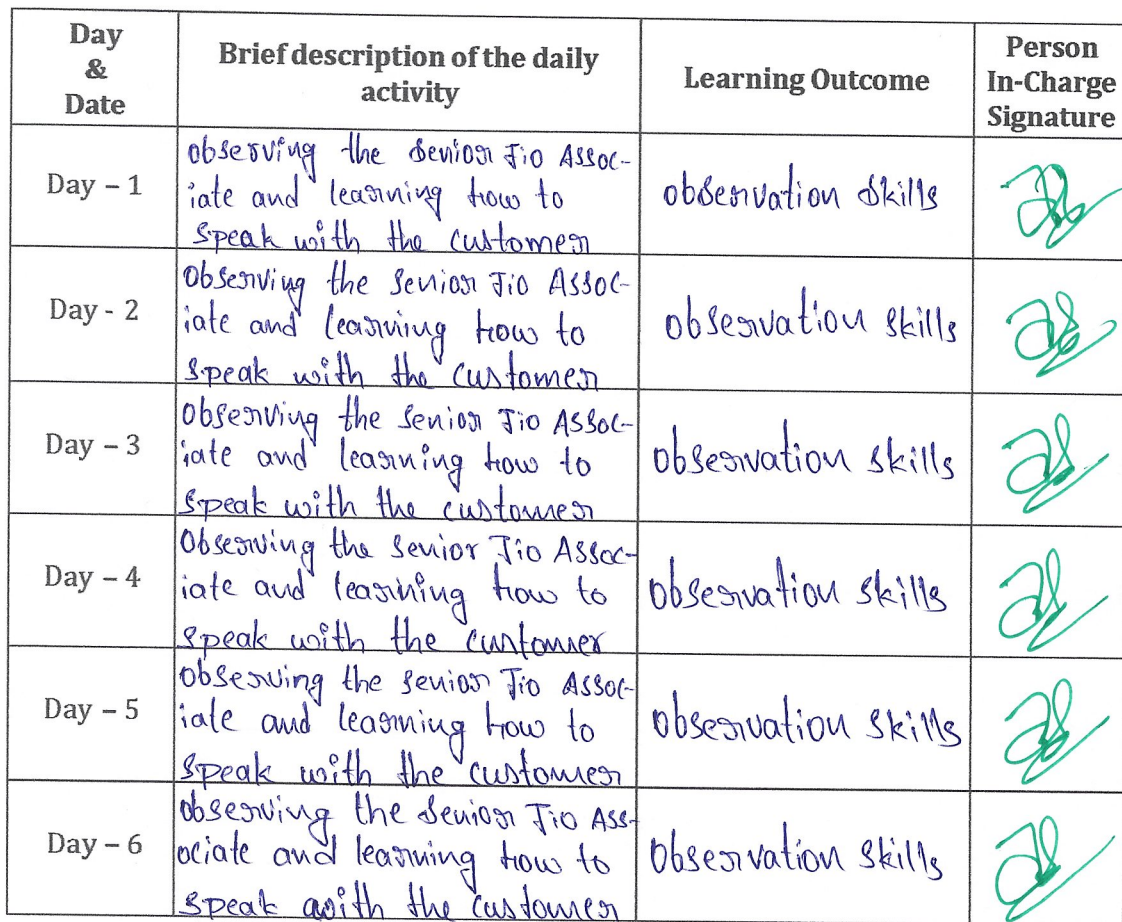 Day
&
Date
Brief description of the daily
activity
Learning Outcome
Person
In-Charge
Signature
Day – 1
observing the Senior Jio Assoc-
iate and learning how to
speak with the customer
observation skills
Day - 2
Observing the Senior Jio Assoc-
iate and learning how to
speak with the customer
observation skills
Day – 3
Observing the Senior Jio Assoc-
iate and learning how to
speak with the customer
observation skills
Day – 4
Observing the Senior Jio Assoc-
iate and learning how to
speak with the customer
observation skills
Day – 5
observing the Senior Jio Assoc-
iate and learning how to
speak with the customer
observation skills
Day – 6
observing the Senior Jio Ass-
ociate and learning how to
speak with the customer
observation skills